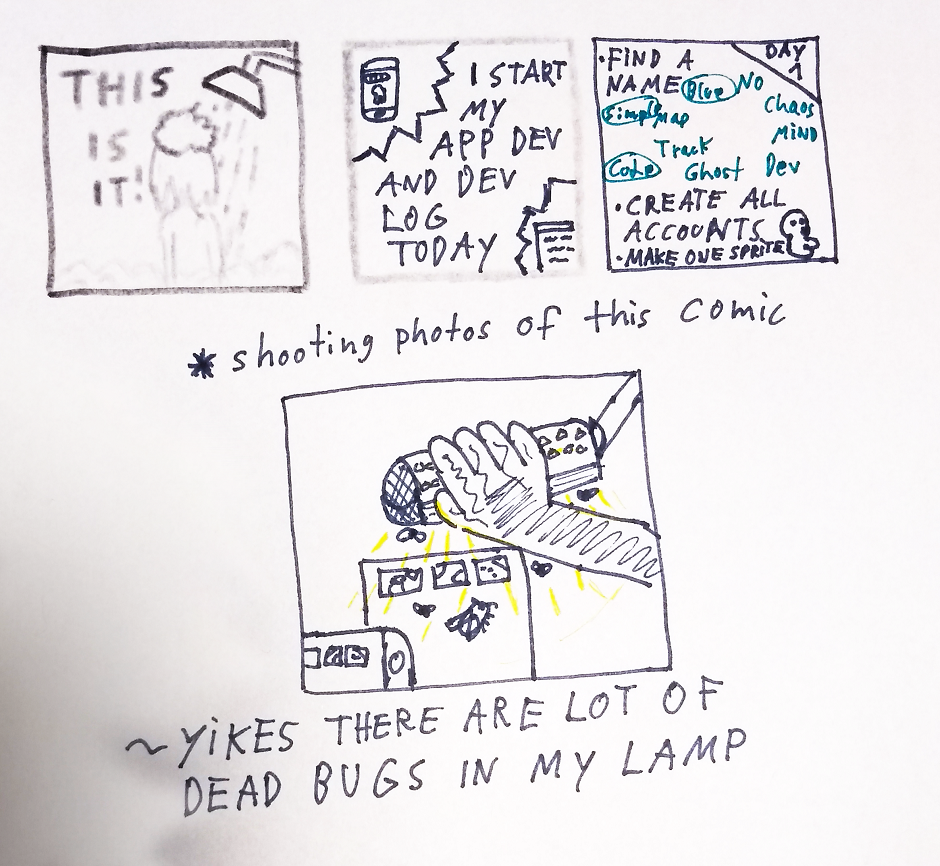 THIS
IS
IT!
I START
MY
APP DEV
AND DEV
LOG
TODAY
DAY
1
•FIND A
NAME Blue NO
Simple Map Chaos
MIND
Track
Code Ghost Dev
•CREATE ALL
ACCOUNTS
•MAKE ONE SPRITE
* shooting photos of this comic
~YIKES THERE ARE LOT OF
DEAD BUGS IN MY LAMP